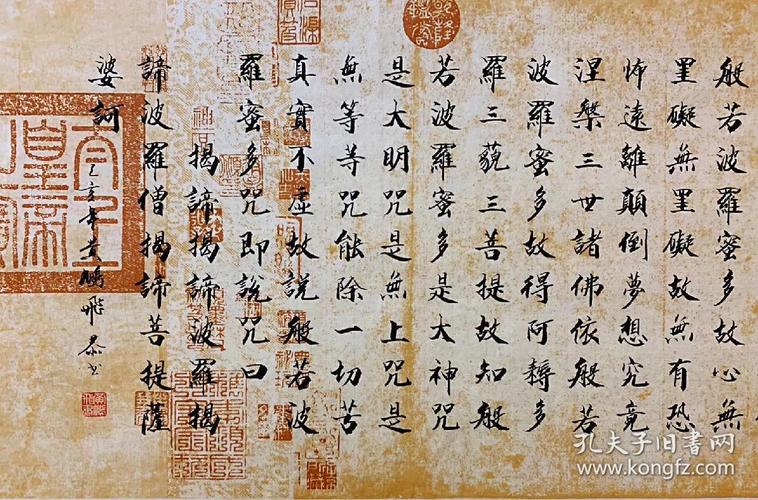 般若波羅蜜多故心無
罣礙無罣礙故無有恐
怖遠離顛倒夢想究竟
涅槃三世諸佛依般若
波羅蜜多故得阿耨多
羅三藐三菩提故知般
若波羅蜜多是大神咒
是大明咒是無上咒是
無等等咒能除一切苦
真實不虛故說般若波
羅蜜多咒即說咒曰
揭諦揭諦波羅揭
諦波羅僧揭諦菩提薩
婆訶
己亥年黄鵬飛恭书
孔夫子旧书网
www.kongfz.com